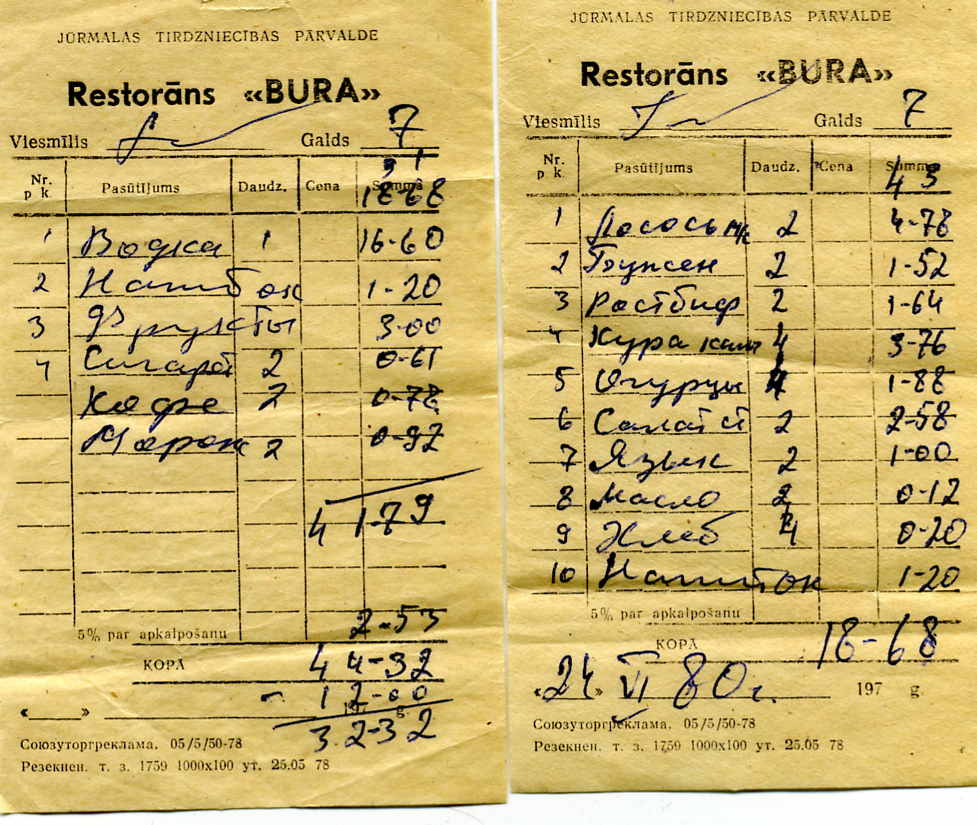 JŪRMALAS TIRDZNIECĪBAS PĀRVALDE
Restorāns «BURA»
Viesmīlis Galds 7
Nr. p k. Pasūtījums Daudz. Cena Summa
18-68
1 Водка 1 16-60
2 Напиток 1-20
3 Фрукты 3-00
4 Сигарет 2 0-61
Кофе 2 0-78
Морож 2 0-92
41-79
5% par apkalpošanu 2-53
KOPĀ 44-32
- 12-00
« » 197 g.
32-32
Союзуторгреклама. 05/5/50-78
Резекнен. т. з. 1759 1000x100 ут. 25.05 78
JŪRMALAS TIRDZNIECĪBAS PĀRVALDE
Restorāns «BURA»
Viesmīlis Galds 7
Nr. p k. Pasūtījums Daudz. Cena Summa
43
1 Лосось м/с 2 4-78
2 Бужен 2 1-52
3 Ростбиф 2 1-64
4 Кура 4 3-76
5 Огурцы 4 1-88
6 Салат 2 2-58
7 Язык 2 1-00
8 Масло 2 0-12
9 Хлеб 4 0-20
10 Напиток 1-20
5% par apkalpošanu
KOPĀ 18-68
«24» VI 80 г. 197 g.
Союзуторгреклама. 05/5/50-78
Резекнен. т. з. 1759 1000x100 ут. 25.05 78